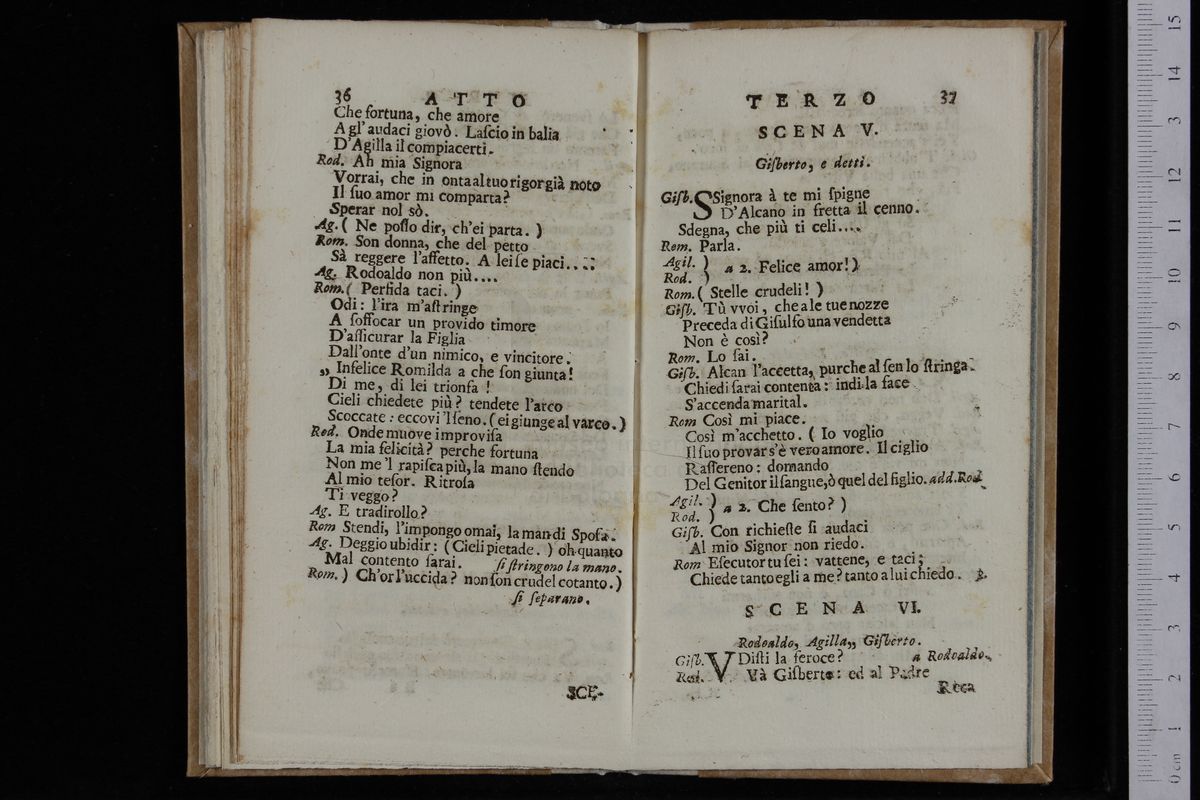 36 ATTO
Che fortuna, che amore
A gl'audaci giovò. Laſcio in balia
D'Agilla il compiacerti.
Rod. Ah mia Signora
Vorrai, che in onta al tuo rigor già noto
Il ſuo amor mi comparta?
Sperar nol sò.
Ag. ( Ne poſſo dir, ch'ei parta. )
Rom. Son donna, che del petto
Sà reggere l'affetto. A lei ſe piaci....
Ag. Rodoaldo non più....
Rom. ( Perfida taci. )
Odi: l'ira m'aſtringe
A ſoffocar un provido timore
D'aſſicurar la Figlia
Dall'onte d'un nimico, e vincitore.
„ Infelice Romilda a che ſon giunta!
Di me, di lei trionfa !
Cieli chiedete più? tendete l'arco
Scoccate: eccovi 'l ſeno. ( ei giunge al varco. )
Rod. Onde muove improviſa
La mia felicità? perche fortuna
Non me 'l rapiſca più, la mano ſtendo
Al mio teſor. Ritroſa
Ti veggo?
Ag. E tradirollo?
Rom Stendi, l'impongo omai, la man di Spoſa.
Ag. Deggio ubidir: ( Cieli pietade. ) oh quanto
Mal contento ſarai. ſi ſtringono la mano.
Rom. ) Ch'or l'uccida? non ſon crudel cotanto. )
ſi ſeparano.
SCE-
TERZO 37
SCENA V.
Giſberto, e detti.
Giſb. SSignora à te mi ſpigne
D'Alcano in fretta il cenno.
Sdegna, che più ti celi....
Rom. Parla.
Agil. )
a 2. Felice amor! )
Rod. )
Rom. ( Stelle crudeli! )
Giſb. Tù vvoi, che a le tue nozze
Preceda di Giſulfo una vendetta
Non è così?
Rom. Lo ſai.
Giſb. Alcan l'accetta, purche al ſen lo ſtringa.
Chiedi ſarai contenta: indi la face
S'accenda marital.
Rom Così mi piace.
Così m'acchetto. ( Io voglio
Il ſuo provar s'è vero amore. Il ciglio
Raſſereno: domando
Del Genitor il ſangue, ò quel del figlio. add. Rod.
Agil. )
a 2. Che ſento? )
Rod. )
Giſb. Con richieſte ſi audaci
Al mio Signor non riedo.
Rom Eſecutor tu ſei: vattene, e taci;
Chiede tanto egli a me? tanto a lui chiedo. p.
SCENA VI.
Rodoaldo, Agilla,, Giſberto.
Giſb. VDiſti la feroce? a Rodoaldo.
Rod. Và Giſberto: ed al Padre
Reca